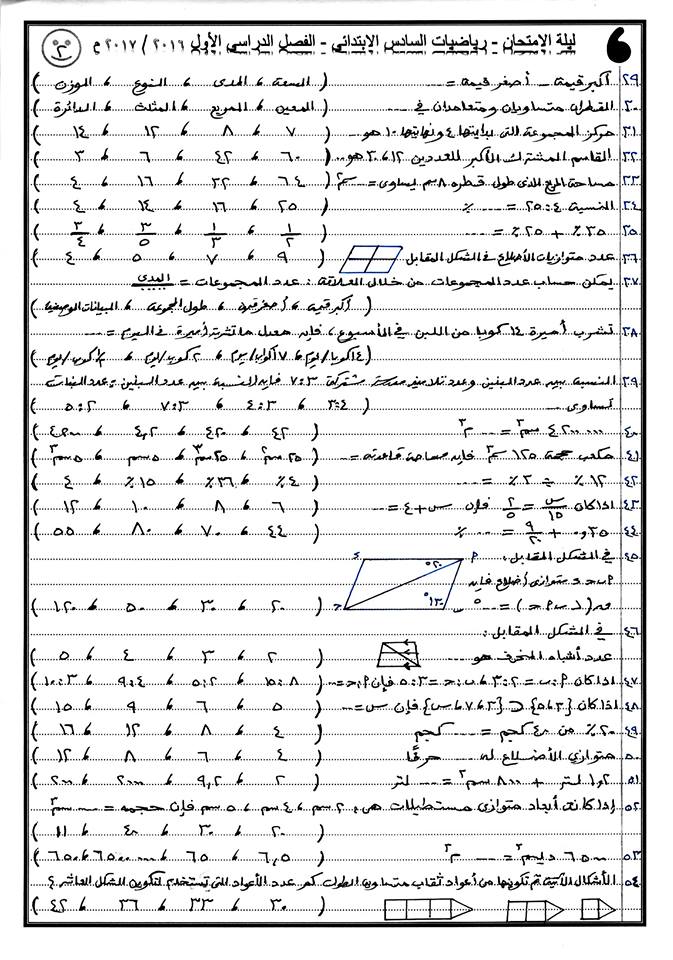 ليلة الامتحان - رياضيات السادس الابتدائي - الفصل الدراسي الأول ٢٠١٦ / ٢٠١٧ م
٢٩ أكبر قيمة - أصغر قيمة = ... ( السعة ، المدى ، النوع ، الوزن )
٣٠ القطران متساويان ومتعامدان في ... ( المعين ، المربع ، المثلث ، الدائرة )
٣١ مركز المجموعة التي بدايتها ٤ ونهايتها ١٠ هو ... ( ٧ ، ٨ ، ١٢ ، ١٤ )
٣٢ القاسم المشترك الأكبر للعددين ١٢ ، ٣٠ هو ... ( ٦٠ ، ٤٢ ، ٦ ، ٣ )
٣٣ مساحة المربع الذي طول قطره ٨ سم يساوى = ... سم٢ ( ٦٤ ، ٣٢ ، ١٦ ، ٤ )
٣٤ النسبة ٤ : ٢٥ = ... ٪ ( ٢٥ ، ١٦ ، ١٤ ، ٤ )
٣٥ ٣٥٪ + ٢٥٪ = ... ( ١/٢ ، ١/٣ ، ٣/٥ ، ٣/٤ )
٣٦ عدد متوازيات الأضلاع في الشكل المقابل ( ٩ ، ٧ ، ٥ ، ٤ )
٣٧ يمكن حساب عدد المجموعات من خلال العلاقة : عدد المجموعات = المدى
( أكبر قيمة ، أصغر قيمة ، طول المجموعة ، البيانات الوصفية )
٣٨ تشرب أميرة ١٤ كوبا من اللبن في الأسبوع ، فإن معدل ما تشربه أميرة في اليوم = ...
( ١٤ كوبا/يوم ، ٧ أكواب/يوم ، ٢ كوب/يوم ، كوب/يوم )
٣٩ النسبة بين عدد البنين وعدد تلاميذ مدرسة مشتركة ٣ : ٧ فإن النسبة بين عدد البنين = عدد البنات
تساوى ... ( ٣ : ٤ ، ٤ : ٣ ، ٣ : ٧ ، ٢ : ٥ )
٤٠ ٤٢٠٠٠٠٠ سم٣ = ... م٣ ( ٤٢ ، ٤٢٠ ، ٤,٢ ، ٤٢٠٠ )
٤١ مكعب حجمه ١٢٥ سم٣ فإن مساحة قاعدته = ... ( ٢٥ سم٢ ، ٢٥ سم٣ ، ٥ سم ، ٥ سم٢ )
٤٢ ١٢٪ ÷ ٣٪ = ... ( ٤٪ ، ٣٦٪ ، ١٥٪ ، ٤ )
٤٣ اذا كان س/١٥ = ٢/٥ فإن س + ٤ = ... ( ٦ ، ٨ ، ١٠ ، ١٢ )
٤٤ ٠,٣٥ + ٩/٢٠ = ... ٪ ( ٤٤ ، ٧٠ ، ٨٠ ، ٥٥ )
٤٥ في الشكل المقابل :
٢ ب ح د متوازى أضلاع فإن
ق ( د ب ٢ ح ) = ... ° ( ٢٠ ، ٣٠ ، ٥٠ ، ١٢٠ )
٢ ب ح د ٢٠° ١٣٠°
٤٦ في الشكل المقابل :
عدد أشباه المنحرف هو ... ( ٢ ، ٣ ، ٤ ، ٥ )
٤٧ اذا كان ٢ : ب = ٢ : ٣ ، ب : ح = ٣ : ٥ فإن ٢ : ح = ( ٨ : ١٥ ، ٢ : ٥ ، ٤ : ٩ ، ٣ : ١٠ )
٤٨ اذا كان { ٣ ، ٥ } ⊂ { ٣ ، ٧ ، ٦ ، س } فإن س = ... ( ٥ ، ٦ ، ٩ ، ١٥ )
٤٩ ٢٠٪ من ٤٠ كجم = ... كجم ( ٤ ، ٨ ، ١٢ ، ١٦ )
٥٠ متوازى الأضلاع له ... حرفًا ( ٤ ، ٦ ، ٨ ، ١٢ )
٥١ ١,٢ لتر + ٨٠٠ سم٣ = ... لتر ( ٢ ، ٩,٢ ، ٢٠٠٠ ، ٢٠٠ )
٥٢ إذا كانت أبعاد متوازى مستطيلات هى : ٢ سم ، ٤ سم ، ٥ سم فإن حجمه = ... سم٣
( ٢٠ ، ٣٠ ، ٤٠ ، ١١ )
٥٣ ٦٥٠٠ ديسم٣ = ... م٣ ( ٦,٥ ، ٦٥ ، ٦٥٠٠٠٠٠ ، ٦٥٠ )
٥٤ الأشكال الآتية تم تكوينها من أعواد ثقاب متساوية الطول كم عدد الأعواد التى تستخدم لتكوين الشكل العاشر ؟
( ٣٠ ، ٣٣ ، ٣٦ ، ٤٢ )